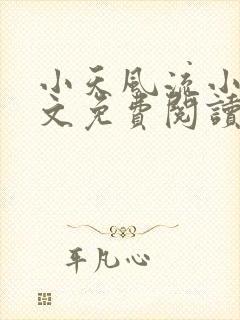 小天風流小
文免費閱讀
平凡心